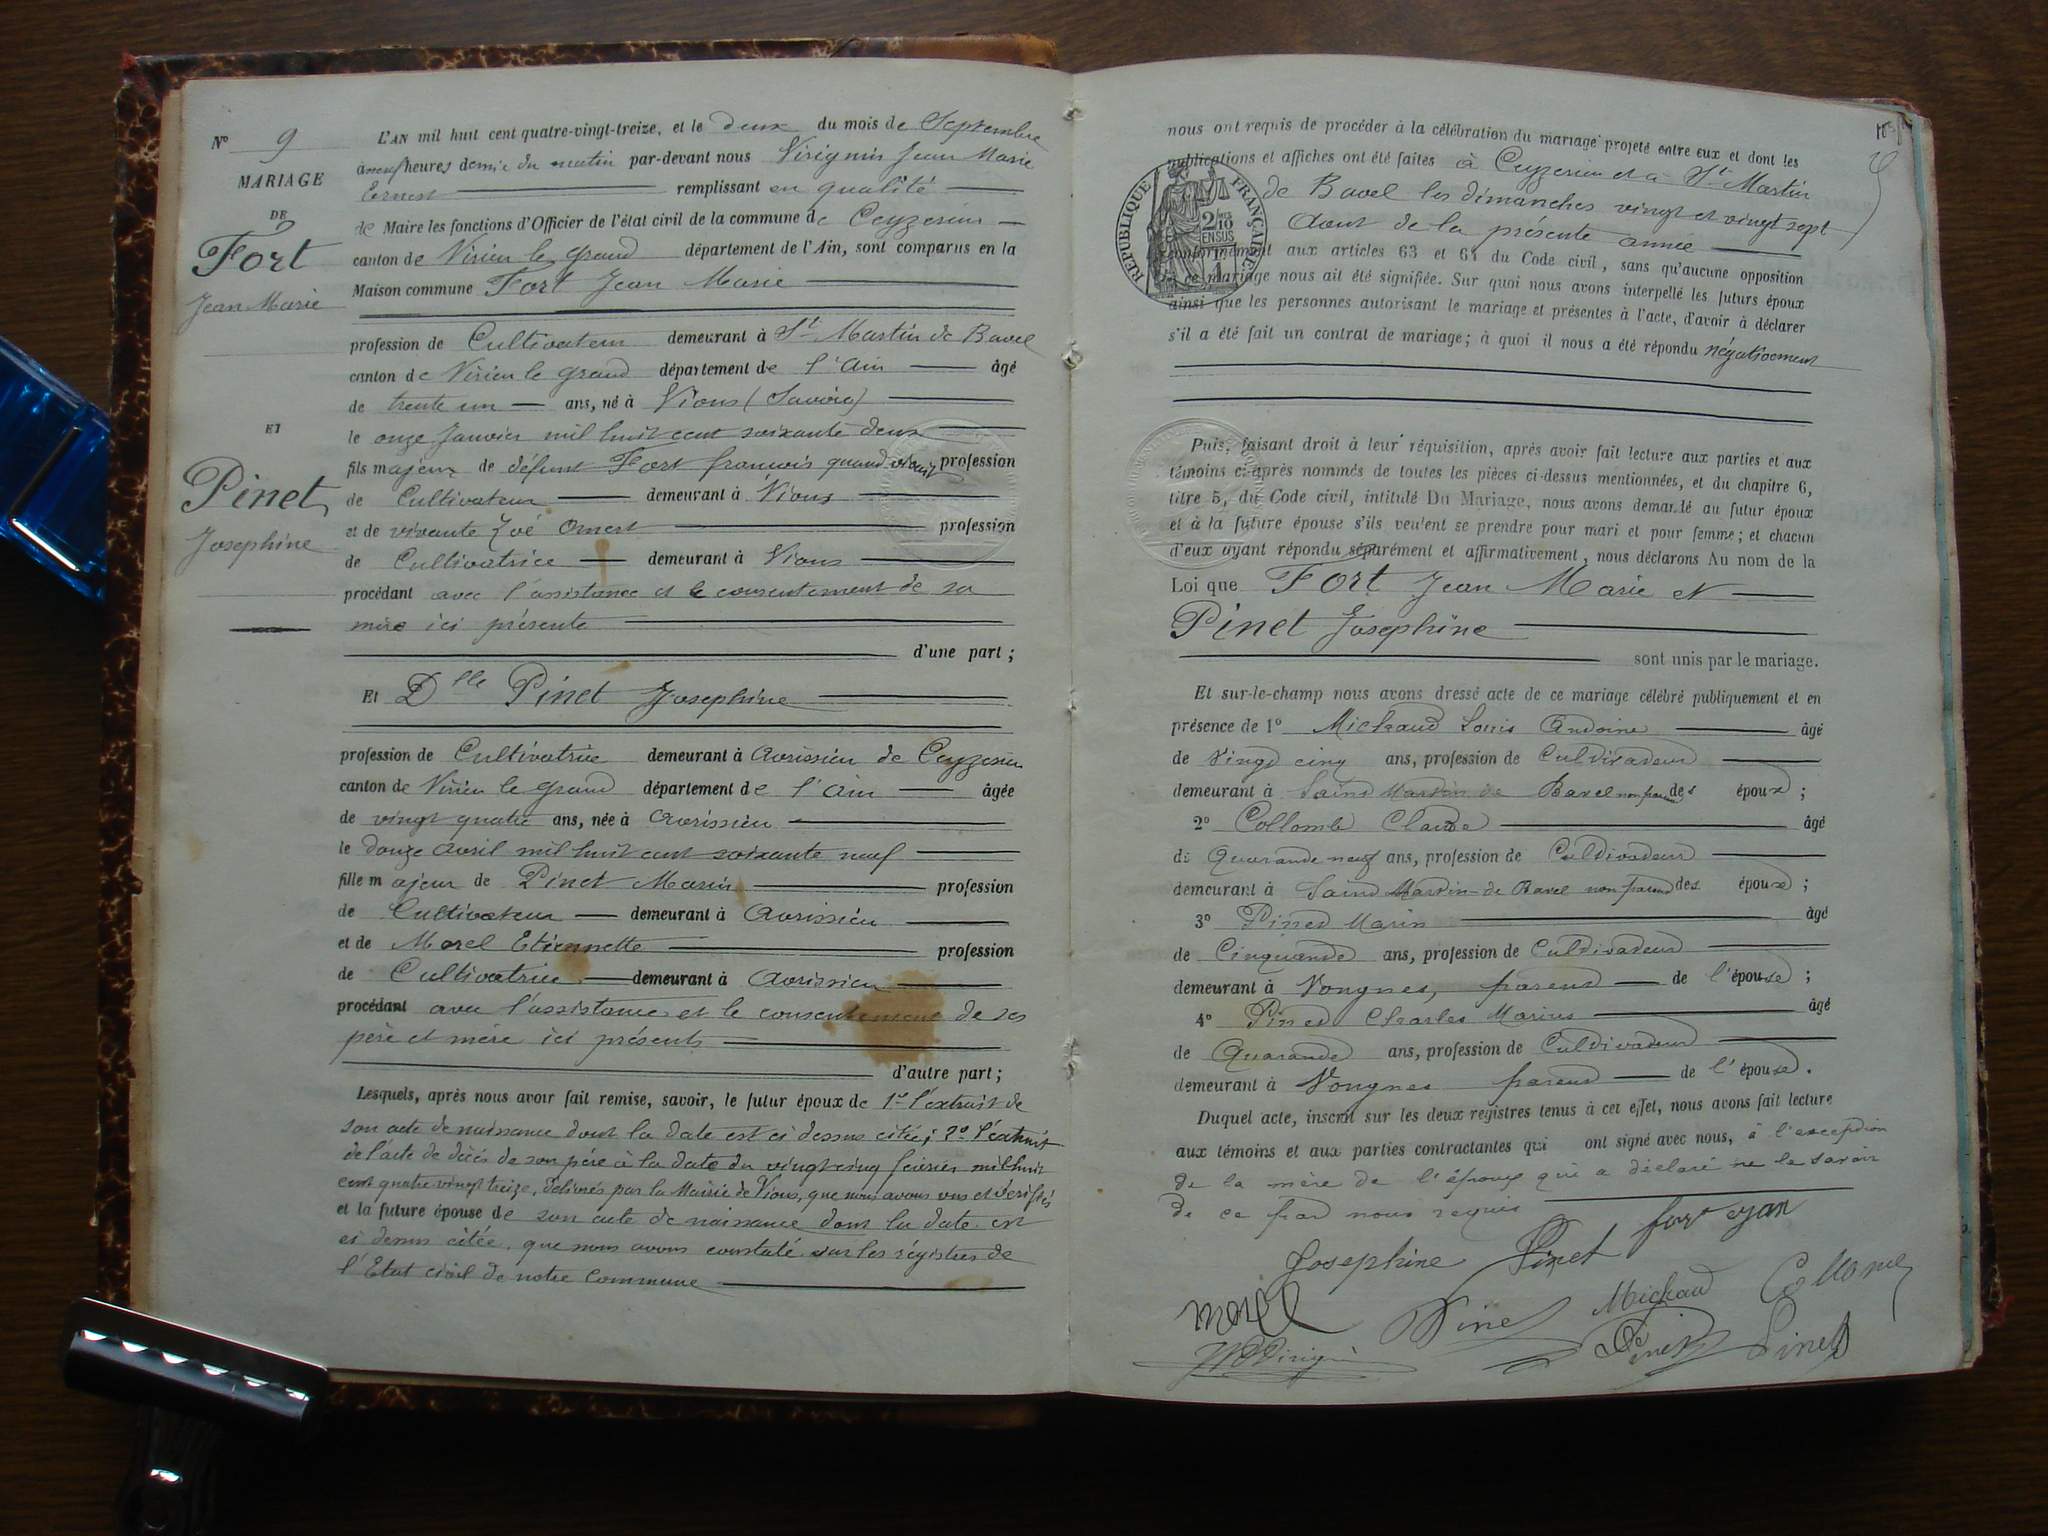 N° 9
MARIAGE
DE
Fort
Jean Marie
ET
Pinet
Josephine
L'AN mil huit cent quatre-vingt-treize, et le deux du mois de Septembre
à neuf heures demie du matin par-devant nous Virignin Jean Marie
Ernest remplissant en qualité
de Maire les fonctions d'Officier de l'état civil de la commune de Ceyzerieu
canton de Virieu le grand département de l'Ain, sont comparus en la
Maison commune Fort Jean Marie
profession de Cultivateur demeurant à St Martin de Bavel
canton de Virieu le grand département de l'Ain âgé
de trente un ans, né à Vions (Savoie)
le onze Janvier mil huit cent soixante deux
fils majeur de défunt Fort francois quand vivait profession
de Cultivateur demeurant à Vions
et de vivante Zoé profession
de Cultivatrice demeurant à Vions
procédant avec l'assistance et le consentement de sa
mère ici présente
d'une part ;
Et Dlle Pinet Josephine
profession de Cultivatrice demeurant à Avrissieu de Ceyzerieu
canton de Virieu le grand département de l'Ain âgée
de vingt quatre ans, née à Avrissieu
le douze Avril mil huit cent soixante neuf
fille majeur de Pinet Marin profession
de Cultivateur demeurant à Avrissieu
et de Morel Etiennette profession
de Cultivatrice demeurant à Avrissieu
procédant avec l'assistance et le consentement de ses
père et mère ici présents
d'autre part ;
Lesquels, après nous avoir fait remise, savoir, le futur époux de 1° l'extrait de
son acte de naissance dont la date est ci dessus citée; 2° l'extrait
de l'acte de décès de son père à la date du vingt cinq février mil huit
cent quatre vingt treize, délivrés par la Mairie de Vions, que nous avons vus et vérifiés
et la future épouse de son acte de naissance dont la date est
ci dessus citée, que nous avons constaté sur les régistres de
l'Etat civil de notre commune
nous ont requis de procéder à la célébration du mariage projeté entre eux et dont les
publications et affiches ont été faites à Ceyzerieu et à St Martin
de Bavel les dimanches vingt et vingt sept
Aout de la présente année
conformément aux articles 63 et 64 du Code civil, sans qu'aucune opposition
à ce mariage nous ait été signifiée. Sur quoi nous avons interpellé les futurs époux
ainsi que les personnes autorisant le mariage et présentes à l'acte, d'avoir à déclarer
s'il a été fait un contrat de mariage ; à quoi il nous a été répondu négativement
RÉPUBLIQUE FRANÇAISE
2/10 EN SUS
Puis, faisant droit à leur réquisition, après avoir fait lecture aux parties et aux
témoins ci-après nommés de toutes les pièces ci-dessus mentionnées, et du chapitre 6,
titre 5, du Code civil, intitulé Du Mariage, nous avons demandé au futur époux
et à la future épouse s'ils veulent se prendre pour mari et pour femme ; et chacun
d'eux ayant répondu séparément et affirmativement, nous déclarons Au nom de la
Loi que Fort Jean Marie et
Pinet Josephine
sont unis par le mariage.
Et sur-le-champ nous avons dressé acte de ce mariage célébré publiquement et en
présence de 1° Michaud Louis Andoine âgé
de Vingd cinq ans, profession de Culdivadeur
demeurant à Saind Mardin de Bavel non parend des époux ;
2° Collomb Claude âgé
de Quarande neuf ans, profession de Culdivadeur
demeurant à Saind Mardin de Bavel non parend des époux ;
3° Pined Marin âgé
de Cinquande ans, profession de Culdivadeur
demeurant à Vongnes, parend de l'épouse ;
4° Pined Charles Marius âgé
de Quarande ans, profession de Culdivadeur
demeurant à Vongnes parend de l'épouse.
Duquel acte, inscrit sur les deux registres tenus à cet effet, nous avons fait lecture
aux témoins et aux parties contractantes qui ont signé avec nous, à l'excepdion
de la mère de l'époux qui a déclaré ne le savoir
de ce fad nous requis
Josephine Pinet fort ejan
Morel Pinet Michaud Collomb
Pinet Pinet